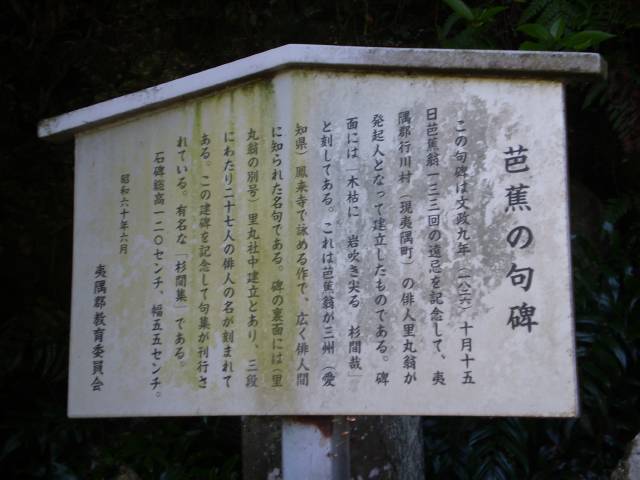 芭蕉の句碑
この句碑は文政九年（一八二六）十月十五
日芭蕉翁一三三回の遠忌を記念して、夷
隅郡行川村（現夷隅町）の俳人里丸翁が
発起人となって建立したものである。碑
面には「木枯に　岩吹き尖る　杉間哉」
と刻してある。これは芭蕉翁が三州（愛
知県）鳳来寺で詠める作で、広く俳人間
に知られた名句である。碑の裏面には（里
丸翁の別号）里丸社中建立とあり、三段
にわたり二十七人の俳人の名が刻まれて
ある。この建碑を記念して句集が刊行さ
れている。有名な「杉間集」である。
石碑総高一二〇センチ、幅五五センチ。
昭和六十年六月
夷隅郡教育委員会